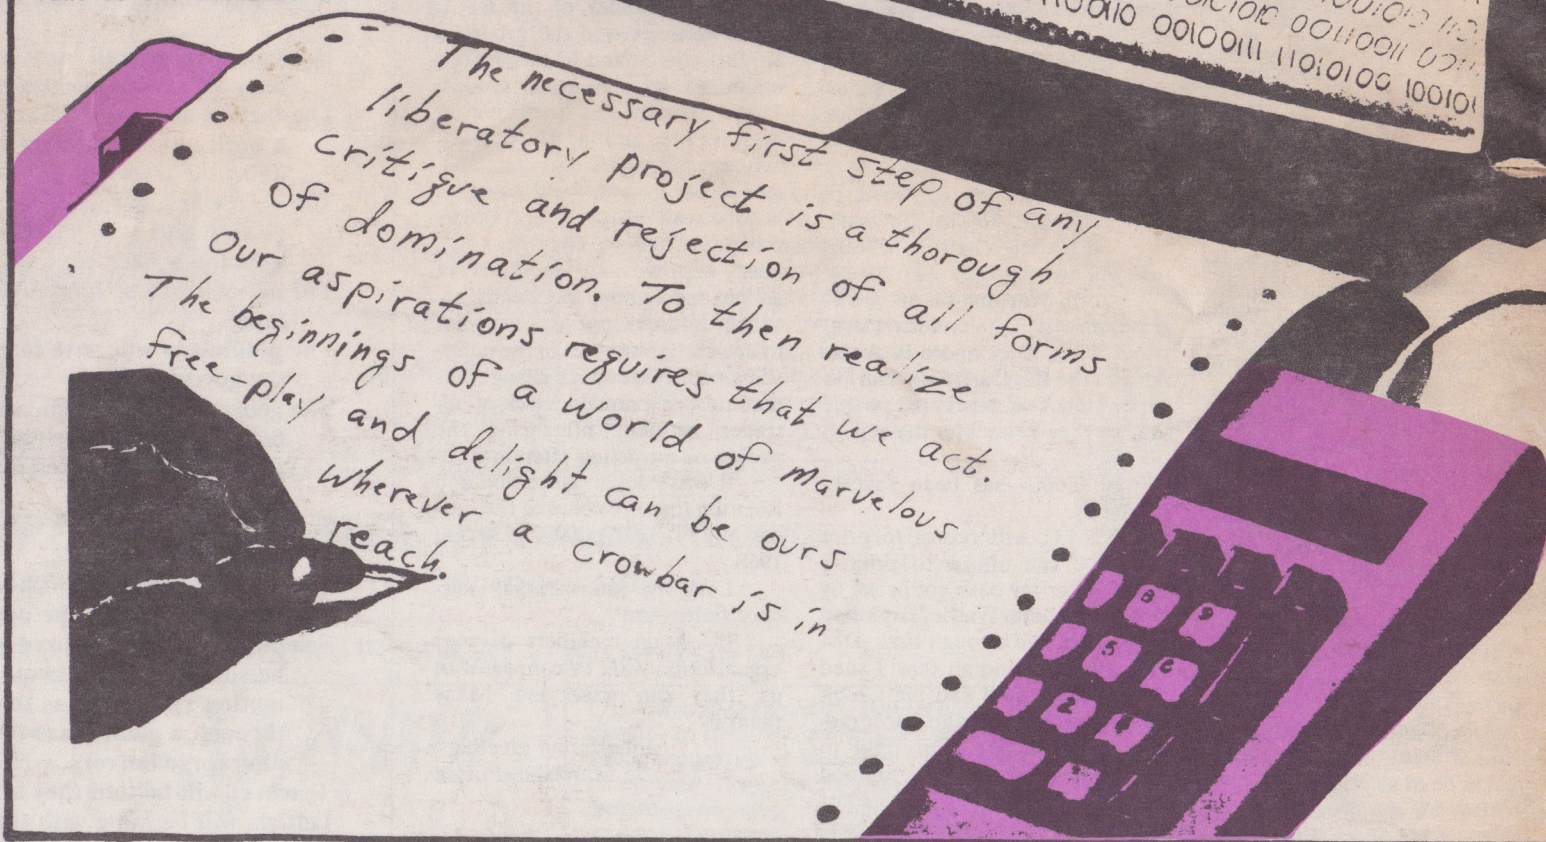 The necessary first step of any
liberatory project is a thorough
critique and rejection of all forms
of domination. To then realize
our aspirations requires that we act.
The beginnings of a world of marvelous
free-play and delight can be ours
wherever a crowbar is in
reach.
00101111 11010100 10010
8 9
5 6
2